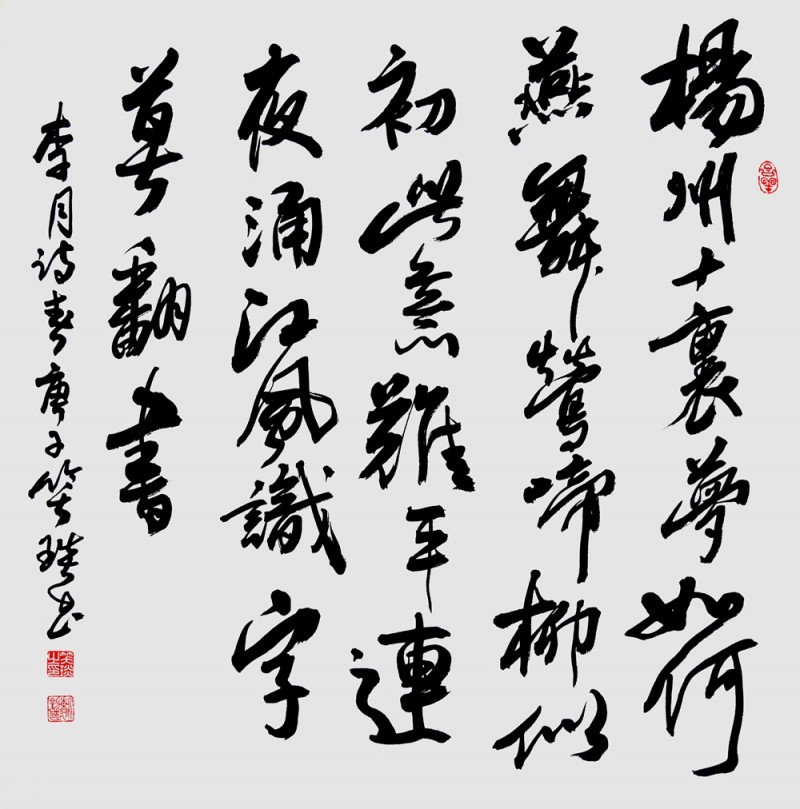 楊州十裏夢如何
燕舞鶯啼柳似
初此意難平連
夜涌江風識字
莫翻書
李月詩春庚子笑琰书